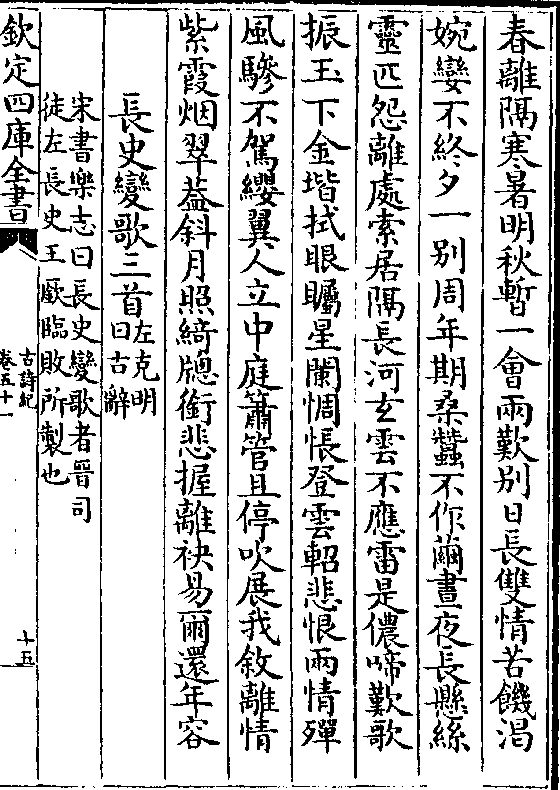 春離隔寒暑明秋暫一會兩歎別日長雙情苦饑渴
婉孌不終夕一別周年期桑蠶不作繭晝夜長懸絲
靈匹怨離處索居隔長河玄雲不應雷是儂啼歎歌
振玉下金堦拭眼矚星闌惆悵登雲軺悲恨兩情殫
風驂不駕纓翼人立中庭簫管且停吹展我敘離情
紫霞烟翠葢斜月照綺牕銜悲握離袂易爾還年容
長史變歌三首左克明
曰古辭
宋書樂志曰長史變歌者晉司
徒左長史王廞臨敗所製也
欽定四庫全書
古詩紀
卷五十一
十五